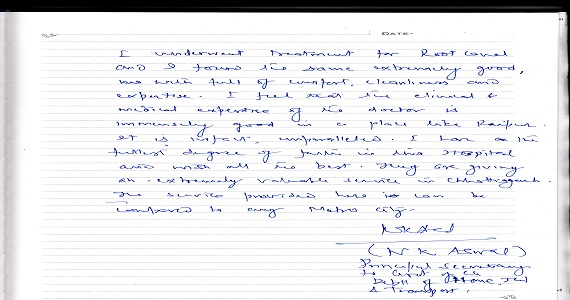 DATE-
I underwent treatment for Root Canal
and I found the same extremely good,
and with full of comfort, cleanliness and
expertise. I feel that the clinical &
medical expertise of the doctor is
immensely good in a place like Raipur.
It is infact, unparalleled. I have the
fullest degree of faith in this Hospital
and wish all the best. They are giving
an extremely valuable service in Chhattisgarh.
The service provided here can be
compared to any Metro city.
(N K Aswal)
Principal Secretary
to Govt of CG
Deptt of Home, Jail
& Transport.